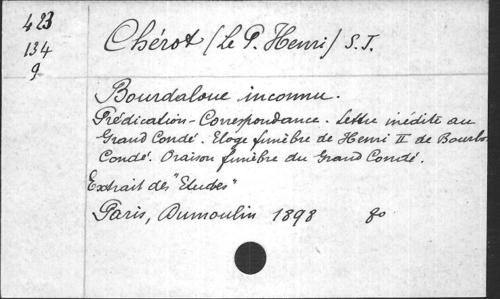 423
134
9
Chérot (Le P. Henri) S.J.
Bourdaloue inconnu.
Prédication - Correspondance. Lettre inédite au
Grand Condé. Eloge funèbre de Henri II de Bourb.
Condé. Oraison funèbre du Grand Condé.
Extrait des "Etudes"
Paris, Dumoulin 1898 8o